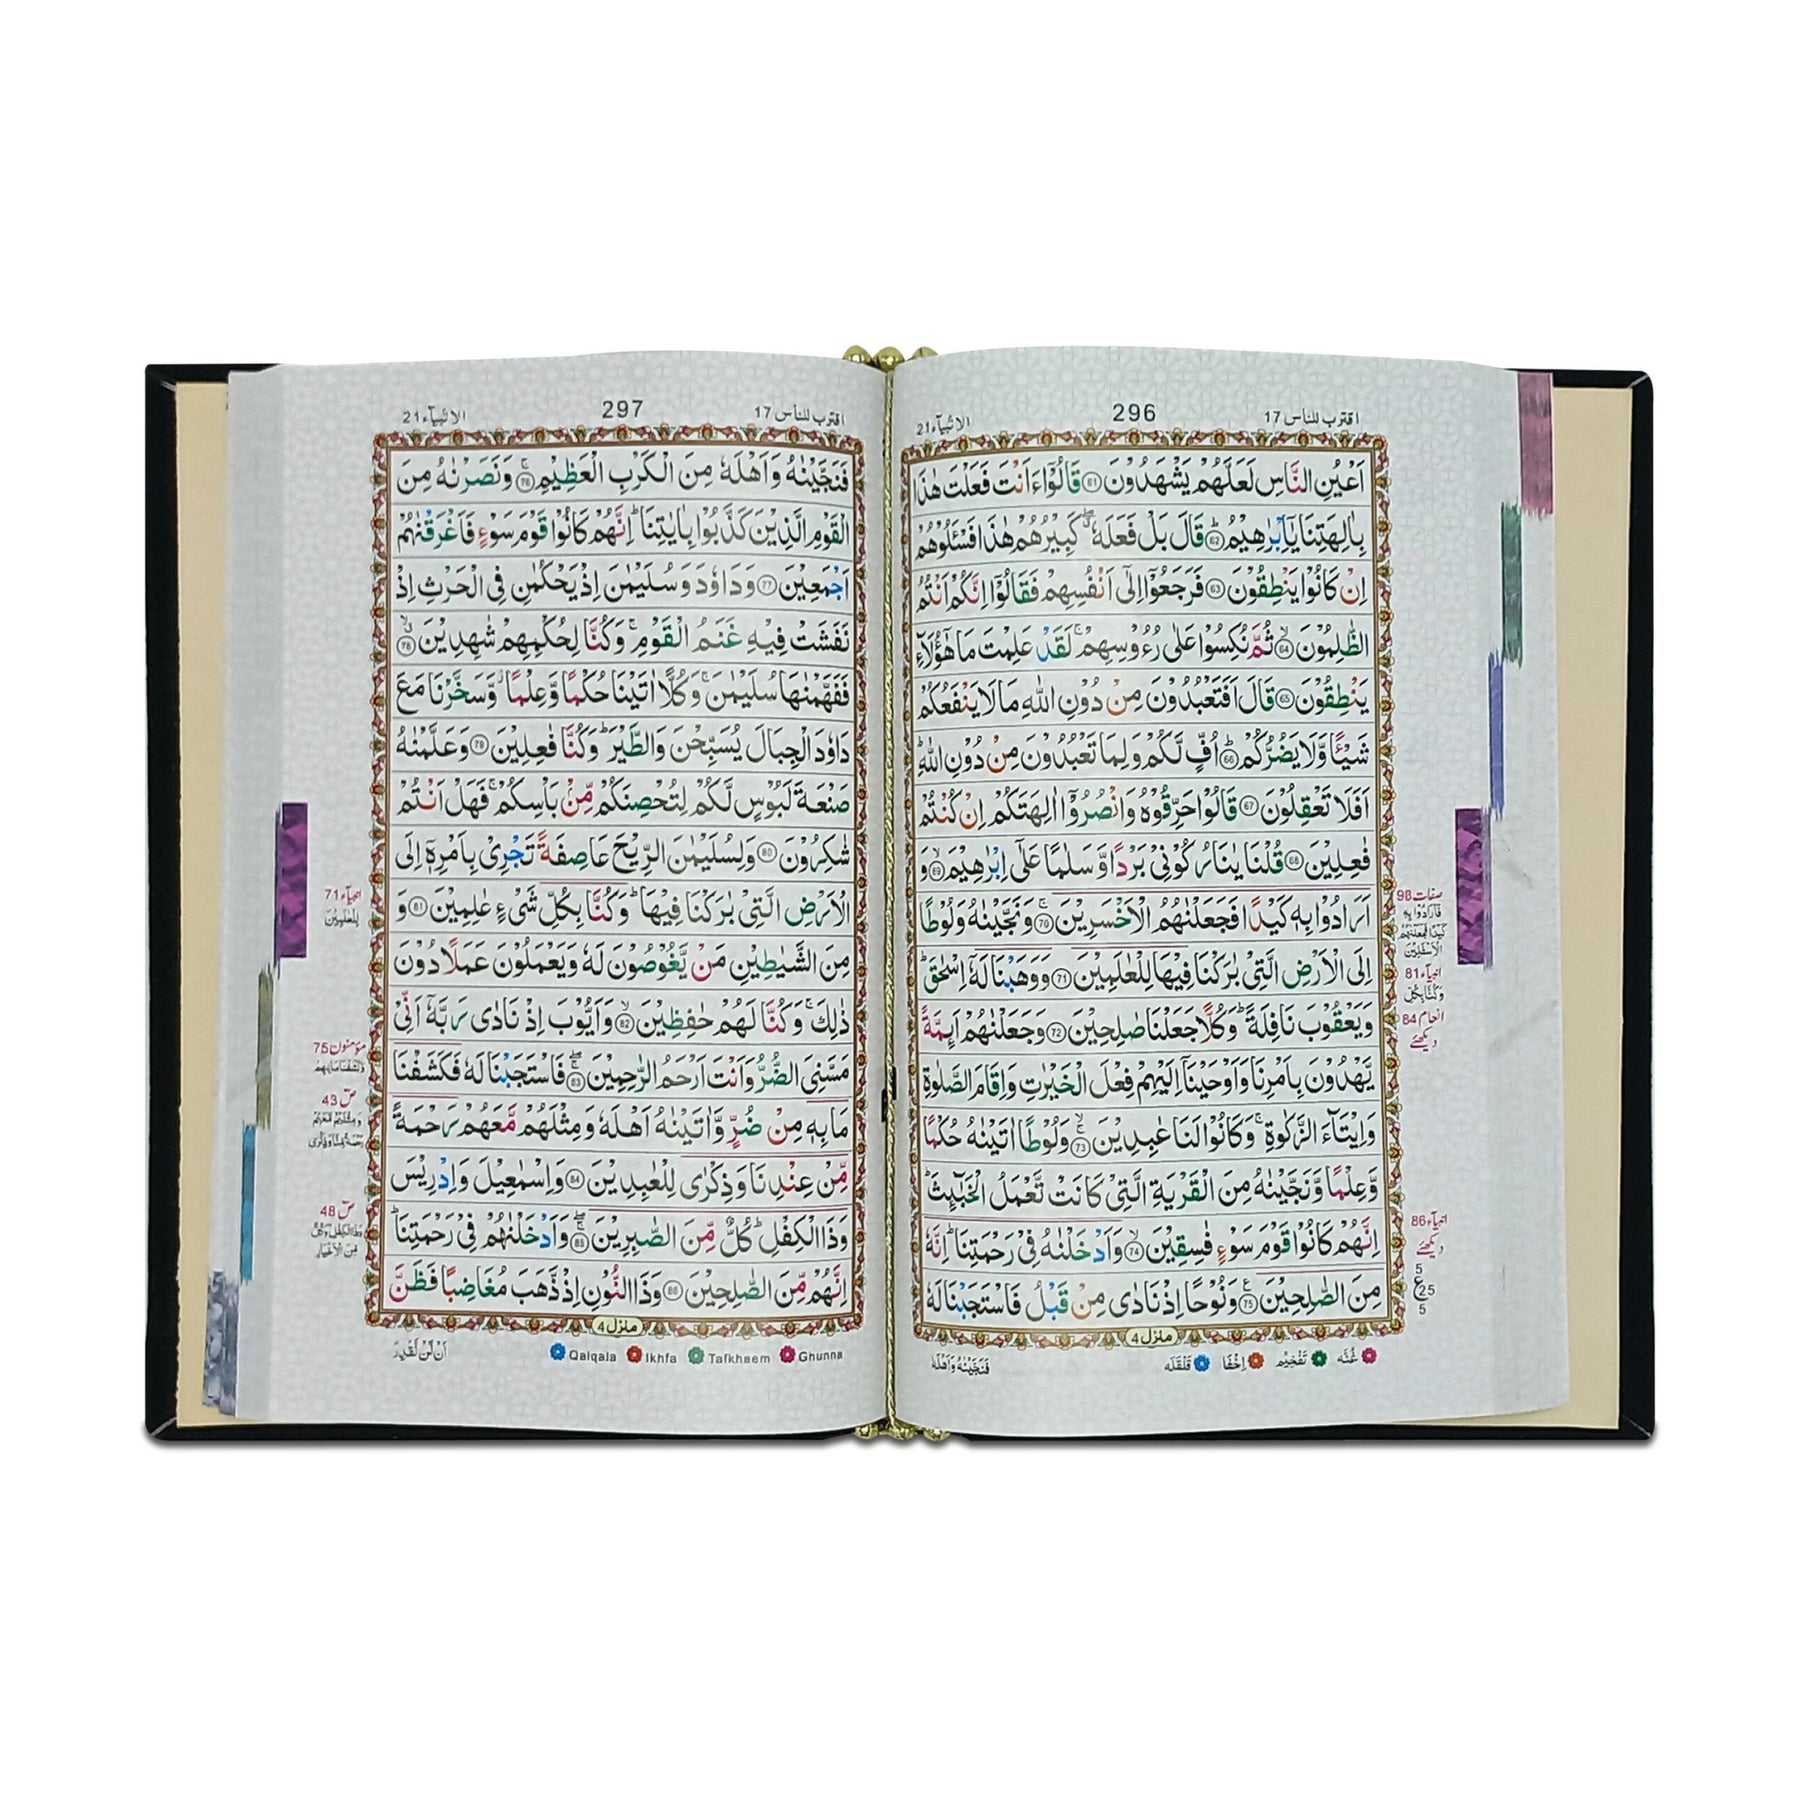 اقترب للناس 17
296
الانبیآء 21
اَعْیُنِ النَّاسِ لَعَلَّهُمْ یَشْهَدُوْنَ 61 قَالُوْۤا ءَاَنْتَ فَعَلْتَ هٰذَا
بِاٰلِهَتِنَا یٰۤاِبْرٰهِیْمُ ؕ 62 قَالَ بَلْ فَعَلَهٗ ۖۗ كَبِیْرُهُمْ هٰذَا فَسْـَٔلُوْهُمْ
اِنْ كَانُوْا یَنْطِقُوْنَ 63 فَرَجَعُوْۤا اِلٰۤی اَنْفُسِهِمْ فَقَالُوْۤا اِنَّكُمْ اَنْتُمُ
الظّٰلِمُوْنَ ۙ 64 ثُمَّ نُكِسُوْا عَلٰی رُءُوْسِهِمْ ۚ لَقَدْ عَلِمْتَ مَا هٰۤؤُلَآءِ
یَنْطِقُوْنَ 65 قَالَ اَفَتَعْبُدُوْنَ مِنْ دُوْنِ اللّٰهِ مَا لَا یَنْفَعُكُمْ
شَیْـًٔا وَّ لَا یَضُرُّكُمْ ؕ 66 اُفٍّ لَّكُمْ وَ لِمَا تَعْبُدُوْنَ مِنْ دُوْنِ اللّٰهِ ؕ
اَفَلَا تَعْقِلُوْنَ 67 قَالُوْا حَرِّقُوْهُ وَ انْصُرُوْۤا اٰلِهَتَكُمْ اِنْ كُنْتُمْ
فٰعِلِیْنَ 68 قُلْنَا یٰنَارُ كُوْنِیْ بَرْدًا وَّ سَلٰمًا عَلٰۤی اِبْرٰهِیْمَ ۙ 69 وَ
اَرَادُوْا بِهٖ كَیْدًا فَجَعَلْنٰهُمُ الْاَخْسَرِیْنَ ۚ 70 وَ نَجَّیْنٰهُ وَ لُوْطًا
اِلَی الْاَرْضِ الَّتِیْ بٰرَكْنَا فِیْهَا لِلْعٰلَمِیْنَ 71 وَ وَهَبْنَا لَهٗۤ اِسْحٰقَ ؕ
وَ یَعْقُوْبَ نَافِلَةً ؕ وَ كُلًّا جَعَلْنَا صٰلِحِیْنَ 72 وَ جَعَلْنٰهُمْ اَىِٕمَّةً
یَّهْدُوْنَ بِاَمْرِنَا وَ اَوْحَیْنَاۤ اِلَیْهِمْ فِعْلَ الْخَیْرٰتِ وَ اِقَامَ الصَّلٰوةِ
وَ اِیْتَآءَ الزَّكٰوةِ ۚ وَ كَانُوْا لَنَا عٰبِدِیْنَ ۚۙ 73 وَ لُوْطًا اٰتَیْنٰهُ حُكْمًا
وَّ عِلْمًا وَّ نَجَّیْنٰهُ مِنَ الْقَرْیَةِ الَّتِیْ كَانَتْ تَّعْمَلُ الْخَبٰٓىِٕثَ ؕ
اِنَّهُمْ كَانُوْا قَوْمَ سَوْءٍ فٰسِقِیْنَ ۙ 74 وَ اَدْخَلْنٰهُ فِیْ رَحْمَتِنَا ؕ اِنَّهٗ
مِنَ الصّٰلِحِیْنَ 75 وَ نُوْحًا اِذْ نَادٰی مِنْ قَبْلُ فَاسْتَجَبْنَا لَهٗ
منزل 4
غُنَّه تَفْخِیْم اِخْفَا قَلْقَلَه
فَنَجَّیْنٰهُ وَ اَهْلَهٗ
صفات 98
فَاَرَادُوْا بِهٖ
كَیْدًا فَجَعَلْنٰهُمُ
الْاَسْفَلِیْنَ
انبیآء 81
وَ كُنَّا بِكُلِّ
انعام 84
دیکھئے
انبیآء 86
دیکھئے
5
ع 25
5
اقترب للناس 17
297
الانبیآء 21
فَنَجَّیْنٰهُ وَ اَهْلَهٗ مِنَ الْكَرْبِ الْعَظِیْمِ ۚ 76 وَ نَصَرْنٰهُ مِنَ
الْقَوْمِ الَّذِیْنَ كَذَّبُوْا بِاٰیٰتِنَا ؕ اِنَّهُمْ كَانُوْا قَوْمَ سَوْءٍ فَاَغْرَقْنٰهُمْ
اَجْمَعِیْنَ 77 وَ دَاوٗدَ وَ سُلَیْمٰنَ اِذْ یَحْكُمٰنِ فِی الْحَرْثِ اِذْ
نَفَشَتْ فِیْهِ غَنَمُ الْقَوْمِ ۚ وَ كُنَّا لِحُكْمِهِمْ شٰهِدِیْنَ ۗۙ 78
فَفَهَّمْنٰهَا سُلَیْمٰنَ ۚ وَ كُلًّا اٰتَیْنَا حُكْمًا وَّ عِلْمًا ؗ وَّ سَخَّرْنَا مَعَ
دَاوٗدَ الْجِبَالَ یُسَبِّحْنَ وَ الطَّیْرَ ؕ وَ كُنَّا فٰعِلِیْنَ 79 وَ عَلَّمْنٰهُ
صَنْعَةَ لَبُوْسٍ لَّكُمْ لِتُحْصِنَكُمْ مِّنْۢ بَاْسِكُمْ ۚ فَهَلْ اَنْتُمْ
شٰكِرُوْنَ 80 وَ لِسُلَیْمٰنَ الرِّیْحَ عَاصِفَةً تَجْرِیْ بِاَمْرِهٖۤ اِلَی
الْاَرْضِ الَّتِیْ بٰرَكْنَا فِیْهَا ؕ وَ كُنَّا بِكُلِّ شَیْءٍ عٰلِمِیْنَ 81 وَ
مِنَ الشَّیٰطِیْنِ مَنْ یَّغُوْصُوْنَ لَهٗ وَ یَعْمَلُوْنَ عَمَلًا دُوْنَ
ذٰلِكَ ۚ وَ كُنَّا لَهُمْ حٰفِظِیْنَ ۙ 82 وَ اَیُّوْبَ اِذْ نَادٰی رَبَّهٗۤ اَنِّیْ
مَسَّنِیَ الضُّرُّ وَ اَنْتَ اَرْحَمُ الرّٰحِمِیْنَ ۚۖ 83 فَاسْتَجَبْنَا لَهٗ فَكَشَفْنَا
مَا بِهٖ مِنْ ضُرٍّ وَّ اٰتَیْنٰهُ اَهْلَهٗ وَ مِثْلَهُمْ مَّعَهُمْ رَحْمَةً
مِّنْ عِنْدِنَا وَ ذِكْرٰی لِلْعٰبِدِیْنَ 84 وَ اِسْمٰعِیْلَ وَ اِدْرِیْسَ
وَ ذَا الْكِفْلِ ؕ كُلٌّ مِّنَ الصّٰبِرِیْنَ ۚۖ 85 وَ اَدْخَلْنٰهُمْ فِیْ رَحْمَتِنَا ؕ
اِنَّهُمْ مِّنَ الصّٰلِحِیْنَ 86 وَ ذَا النُّوْنِ اِذْ ذَّهَبَ مُغَاضِبًا فَظَنَّ
منزل 4
Qalqala Ikhfa Tafkheem Ghunna
اَنْ لَّنْ نَّقْدِرَ
انبیآء 71
لِلْعٰلَمِیْنَ
مؤمنون 75
صٓ 43
وَ مِثْلَهُمْ مَّعَهُمْ
صٓ 48
وَ ذَا الْكِفْلِ وَ كُلٌّ
مِّنَ الْاَخْیَارِ